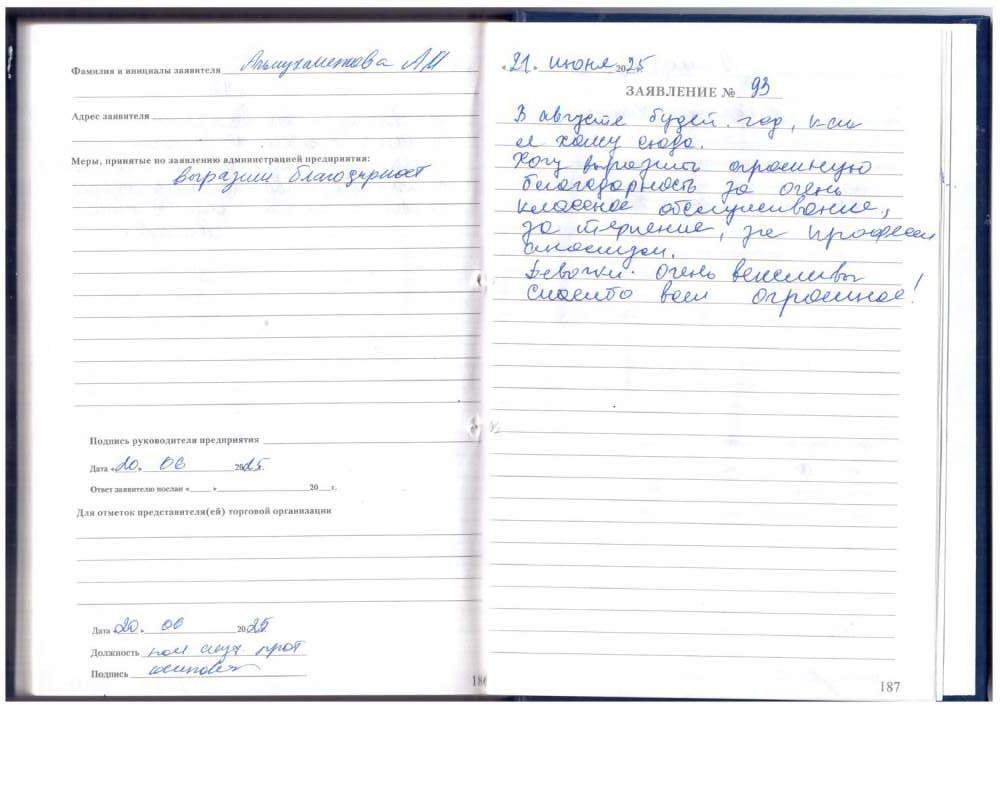 Фамилия и инициалы заявителя Альмухаметова АМ
Адрес заявителя
Меры, принятые по заявлению администрацией предприятия:
выразили благодарност
Подпись руководителя предприятия
Дата «20.» 06 2025.
Ответ заявителю послан « » 20 г.
Для отметок представителя(ей) торговой организации
Дата «20.» 06 2025
Должность
Подпись
186
«21. июня 2025
ЗАЯВЛЕНИЕ № 93
В августе будет. год, как
я хожу сюда.
Хочу выразить огромную
благодарность за очень
классное обслуживание,
за терпение, за професси
анолизм.
Девочки. очень вежливы
Спасибо вам огромное!
187